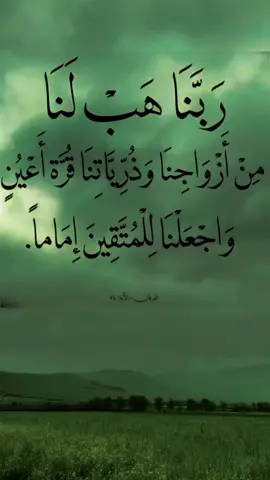 رَبَّنَا هَبْ لَنَا
مِنْ أَزْوَاجِنَا وَذُرِّيَّاتِنَا قُرَّةَ أَعْيُنٍ
وَاجْعَلْنَا لِلْمُتَّقِينَ إِمَاماً.